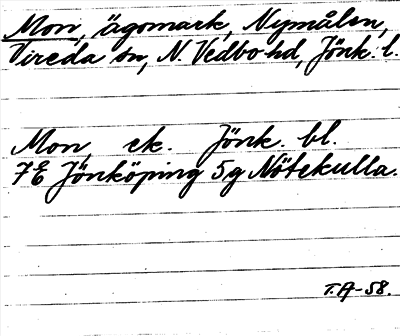 Mon, ägomark, Nymålen,
Vireda sn, N. Vedbo hd, Jönk. l.
Mon, ek. Jönk. bl.
7E Jönköping 5g Nötekulla.
T.A-58.